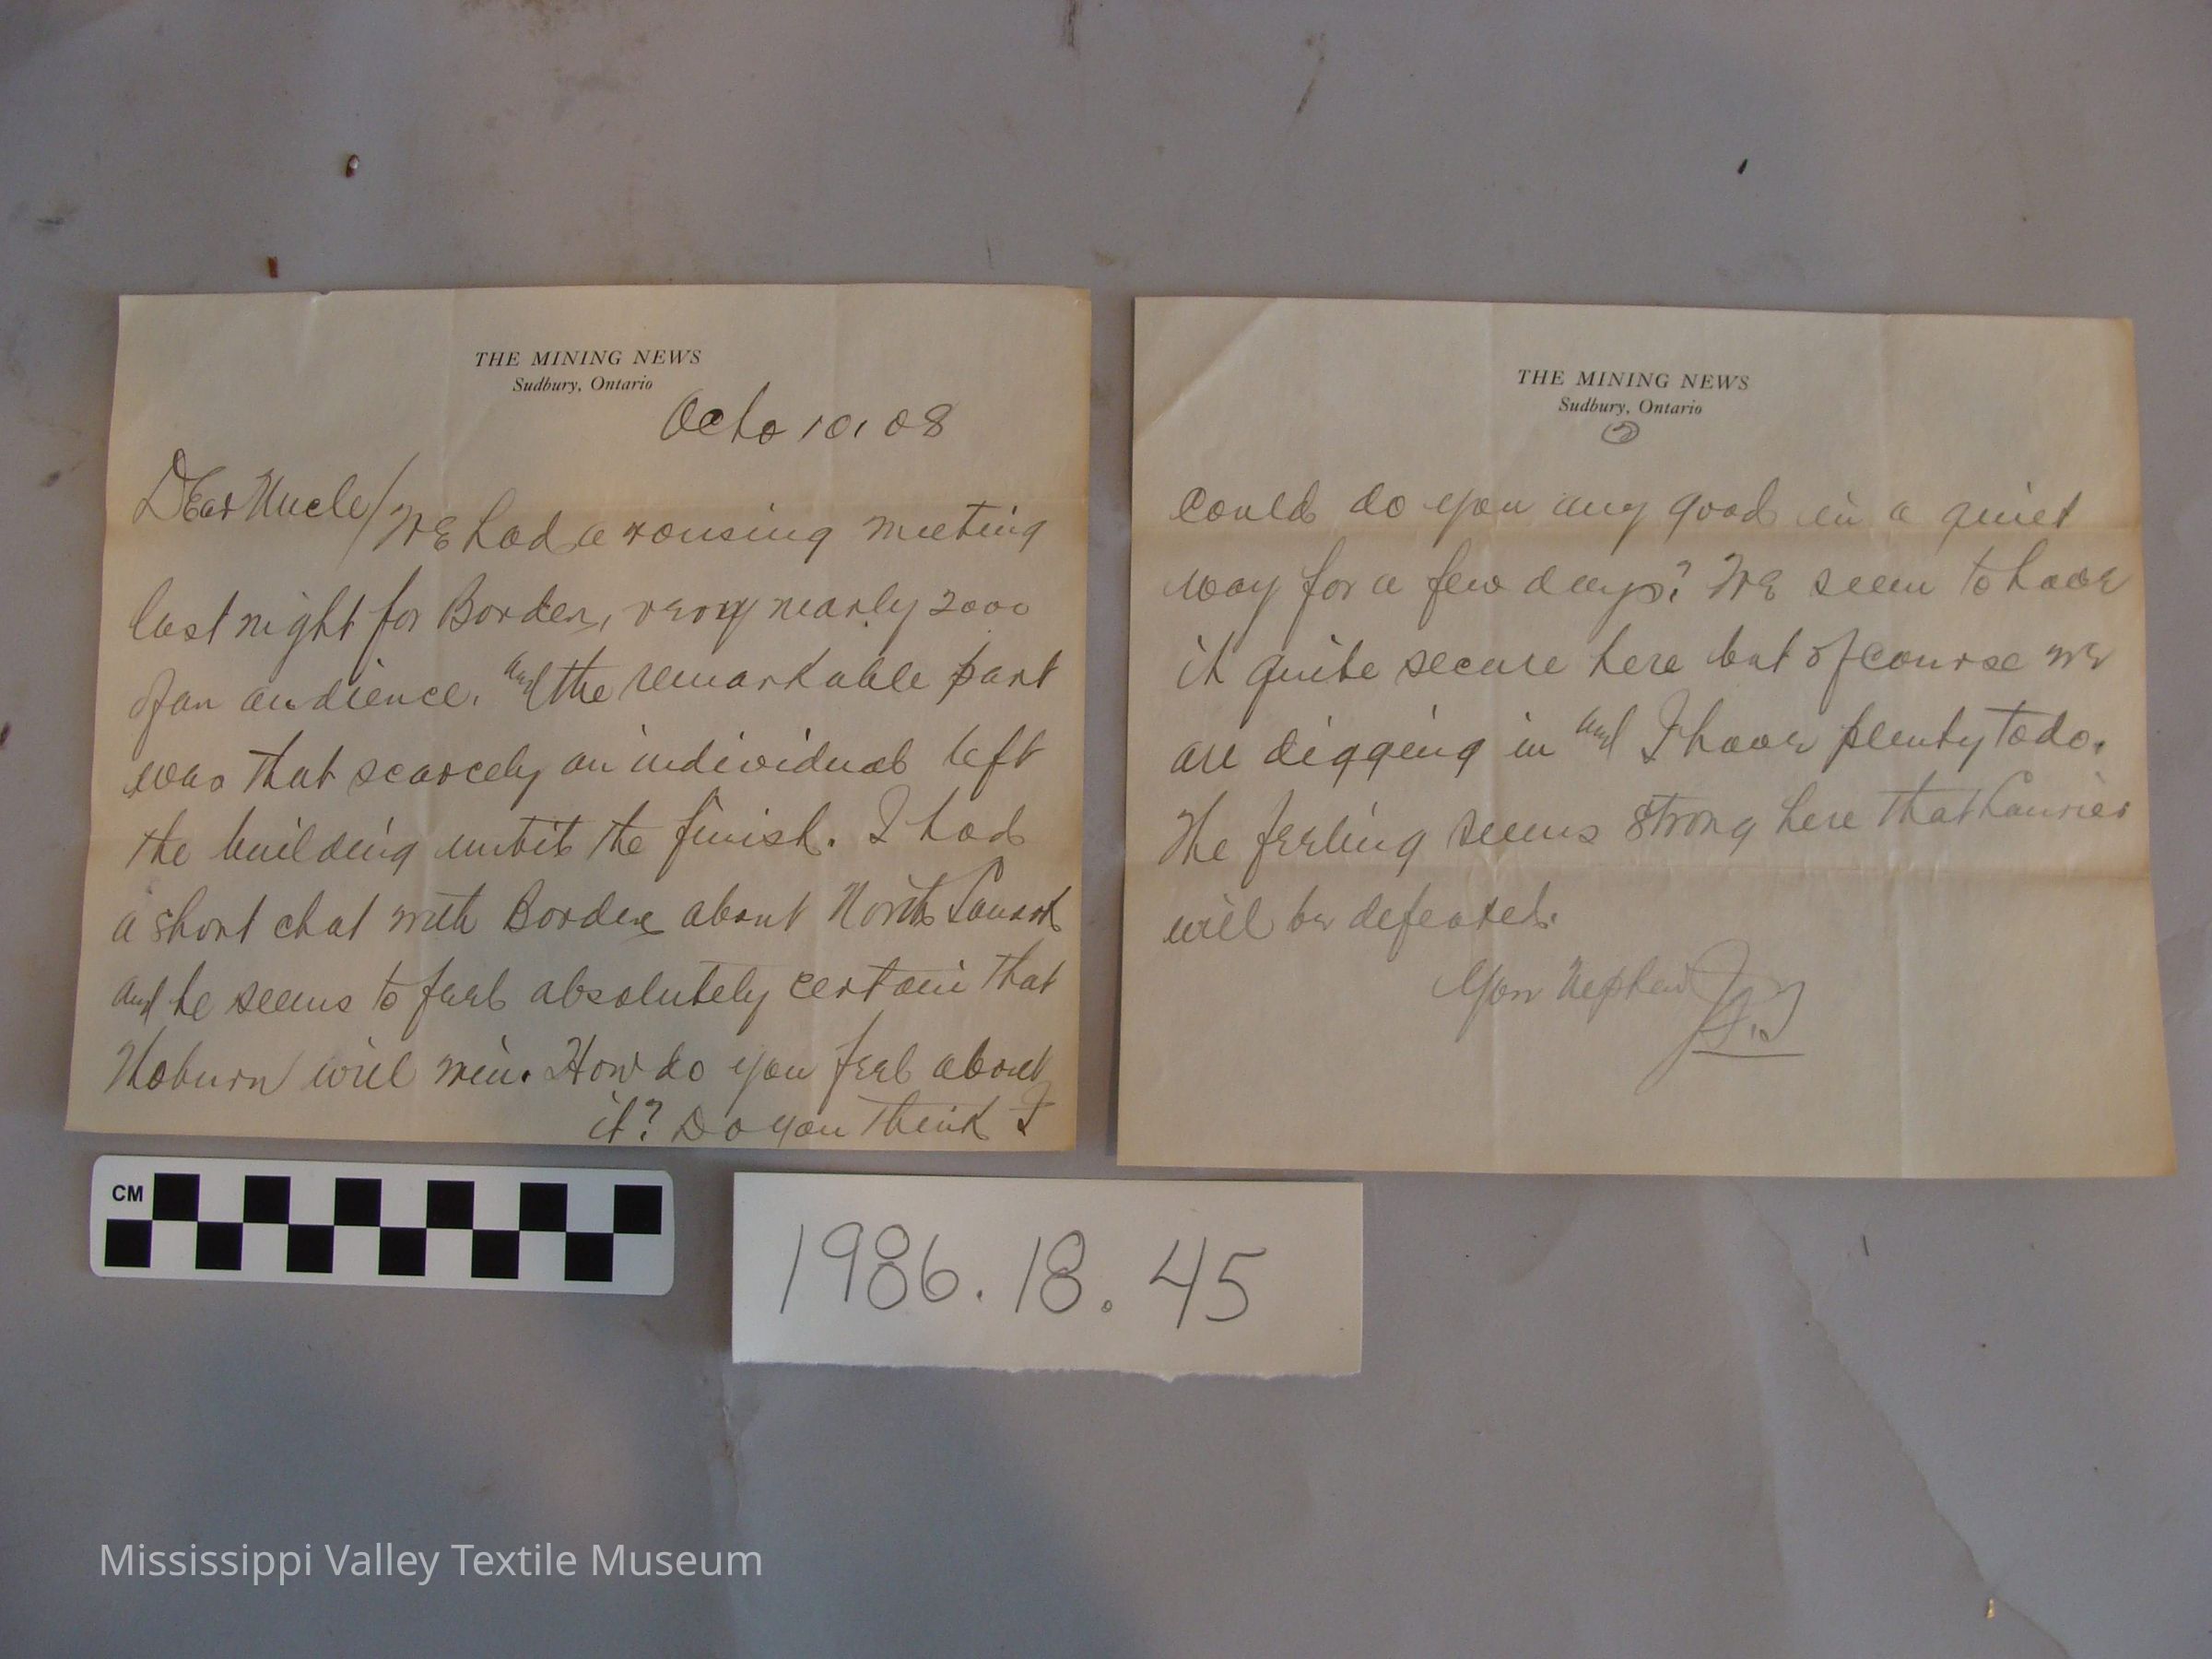 THE MINING NEWS
Sudbury, Ontario
Octo 10, 08
Dear Uncle/
We had a rousing meeting
last night for Borden, very nearly 2000
of an audience, and the remarkable part
was that scarcely an individual left
the building until the finish. I had
a short chat with Borden about North Lanark
and he seems to feel absolutely certain that
Thoburn will win. How do you feel about
it? Do you think I
THE MINING NEWS
Sudbury, Ontario
2
could do you any good in a quiet
way for a few days? We seem to have
it quite secure here but of course we
are digging in and I have plenty to do.
The feeling seems strong here that Laurier
will be defeated.
Your Nephew
CM
1986.18.45
Mississippi Valley Textile Museum